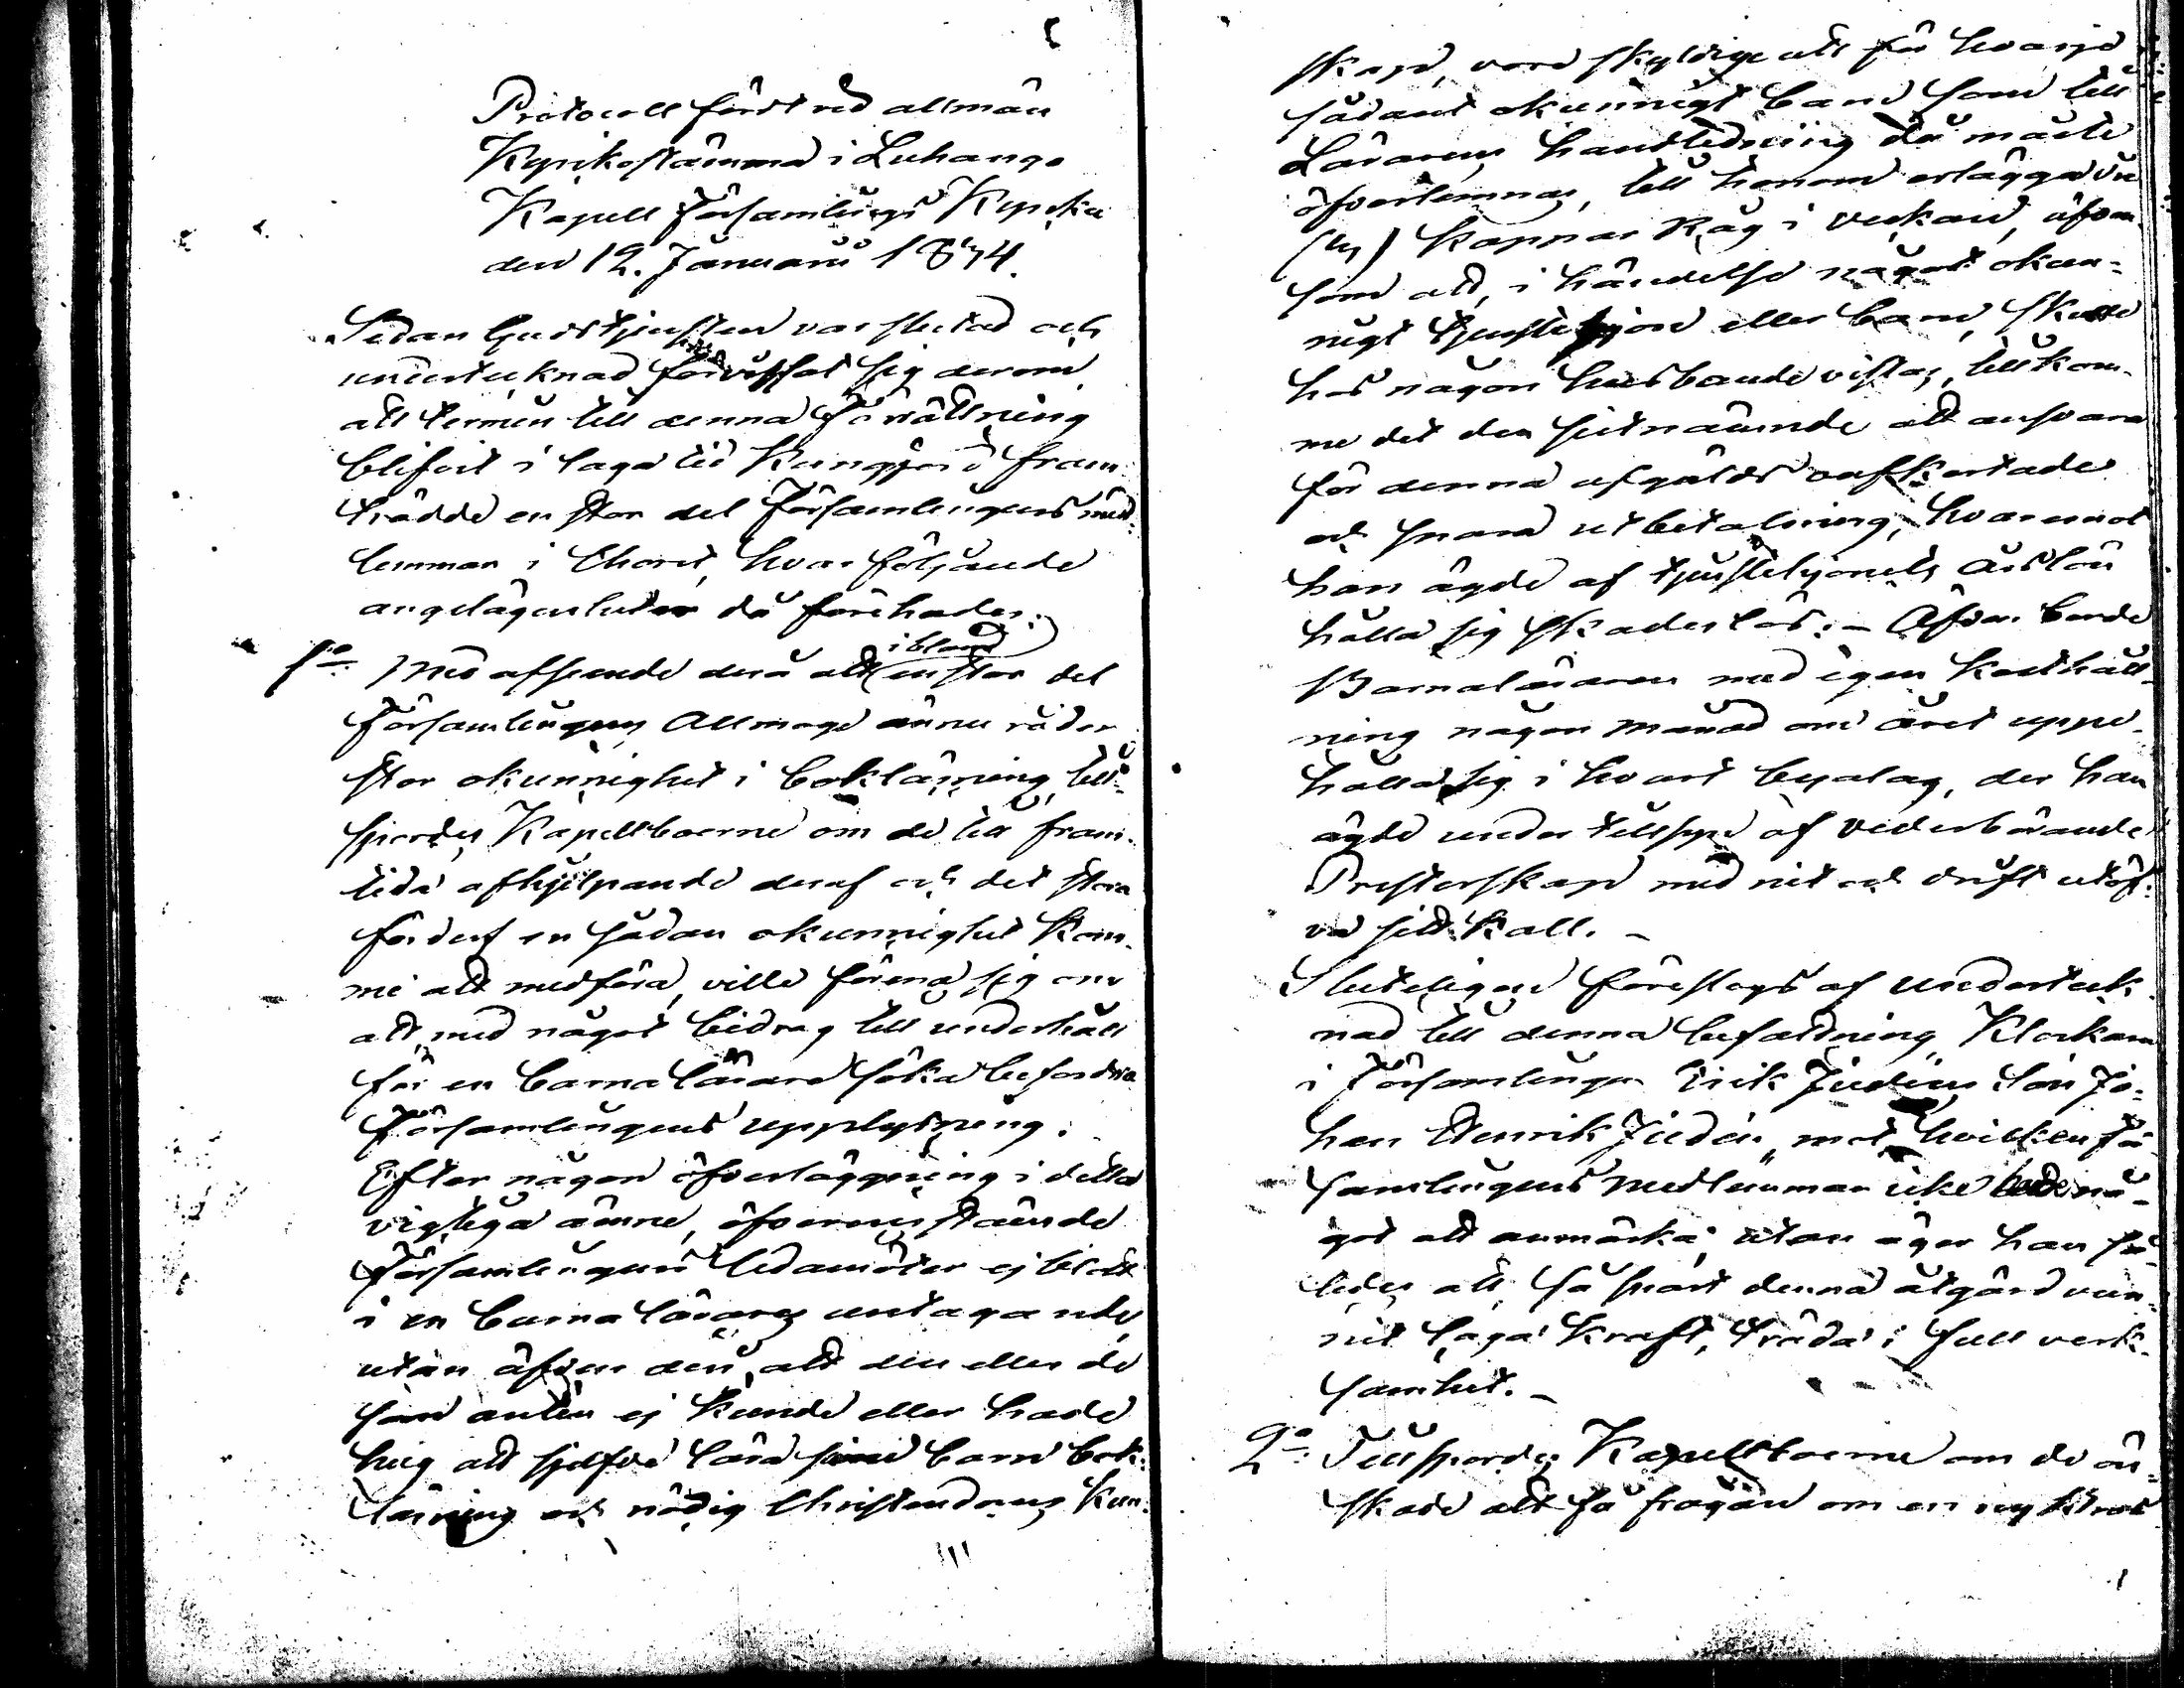 Protocoll fördt vid allmän
Kyrikostämma i Luhango
Kapell Församlings Kyrka
den 12. Januarii 1874.
Sedan Gudstjensten var slutad och
undertecknad förvissat sig derom
att termin till denna förrättning
blifvit i laga tid kungjord fram-
trädde en stor del Församlingens med-
lemmar i Choret, hvar följande
angelägenheter då förehades:
1o Med afseende derå att ibland en stor del
Församlingens Allmoge ännu råder
stor okunnighet i boklärning, till-
spordes Kapellboerne om de till fram-
tida afhjelpande deraf och det stora
förderf en sådan okunnighet kom-
me att medföra, ville förena sig om
att med något bidrag till underhåll
för en barnalärare söka befordra
Församlingens upplysning.
Efter någon öfverläggning i detta
vigtiga ämne, öfverensstämde
Församlingens ledamöter ej blott
i en barnalärares antagande,
utan äfven deri, att den eller de
som anten ej kunde eller hade
hug att sjelfva lära sina barn bok-
lärning och nödig Christendoms kun-
skap, vore skyldige att för hvarje
sådant okunnigt barn som till
Lärarens handledning då måste
öfverlemnas, till honom erlägga
kappar Råg i veckan, äfven
som att, i händelse något okun-
nigt tjenstehjon eller barn, skulle
hos någon husbonde vistas, tillkom-
me det den sistnämnde att ansvara
för denna afgälds oafkortade
och snara utbetalning, hvaremot
han ägde af tjenstehjonets årslön
hålla sig skadeslös. - Äfven borde
Barnaläraren med egen kosthåll-
ning någon månad om året uppe-
hålla sig i hvart byalag, der han
ägde under tillsyn af vederbörande
Presterskap med nit och drift utöf-
va sitt kall. -
Slutligen föreslogs af underteck-
nad till denna befattning Klockaren
i Församlingen Erik Judins son Jo-
han Henrik Judin, mot hvilken För
samlingens medlemmar icke hade nå-
got att anmärka, utan äger han så-
ledes att, så snart denna åtgärd vun-
nit laga kraft, träda i full verk-
samhet. -
2o Tillspordes Kapellboerne om de ön-
skade att få frågan om en ny